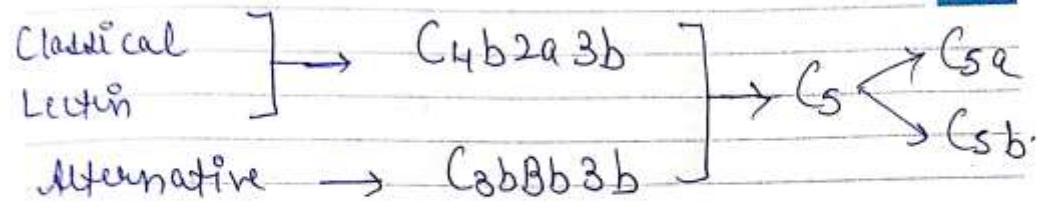 Classical
Lectin
C4b2a3b
Alternative → C3bBb3b
C5
C5a
C5b.